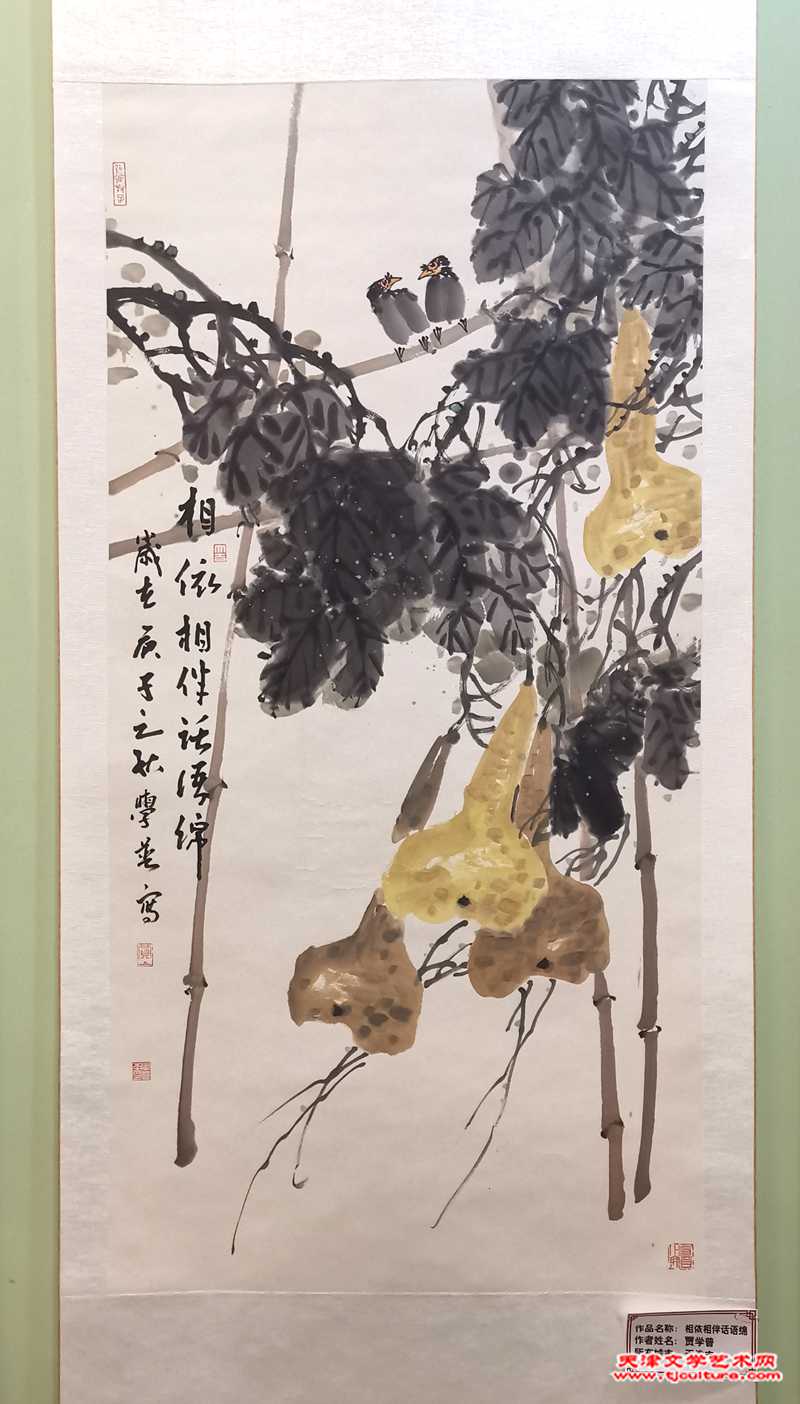 相依相伴话语绵
岁在庚子之秋学普写
作品名称：相依相伴话语绵
作者姓名：贾学普
天津文学艺术网
www.tjculture.com